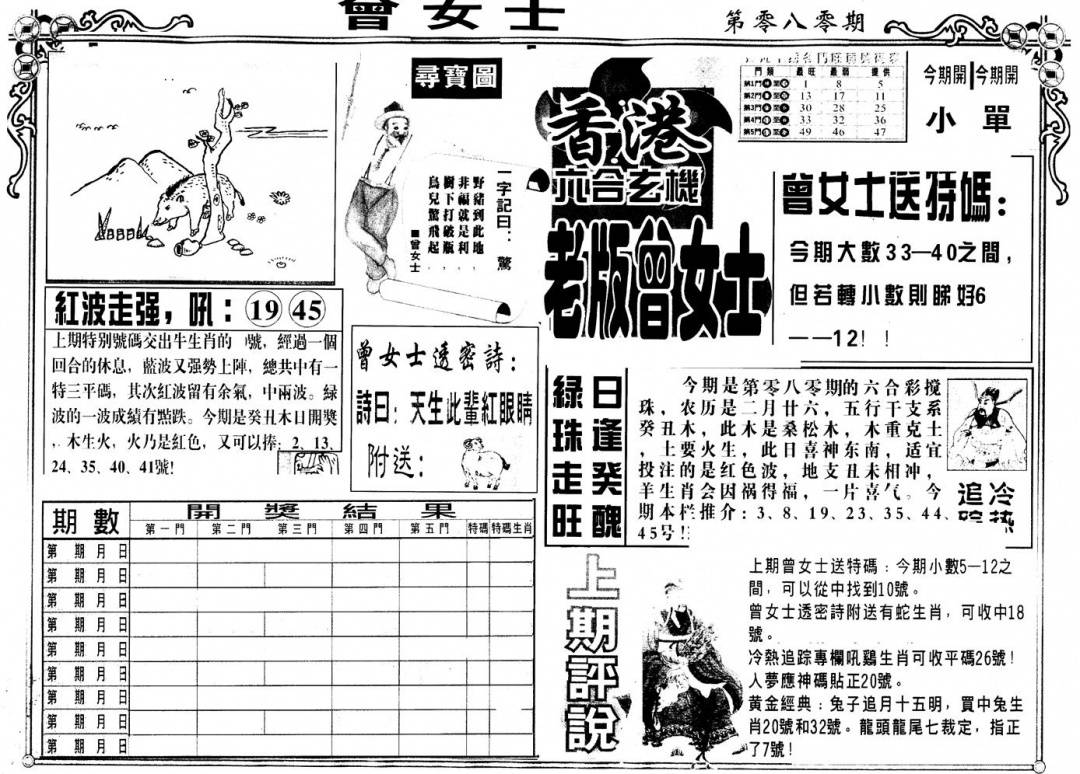 曾女士
第零八零期
尋寶圖
一字記曰：驚
野豬到此地，
非福就是利，
樹下打破版，
鳥兒驚飛起。
■曾女士
香港
六合玄機
老版曾女士
門類 最旺 最弱 提供
第1門 至 1 8 5
第2門 至 13 17 11
第3門 至 30 28 25
第4門 至 33 32 36
第5門 至 49 46 47
今期開 今期開
小 單
曾女士送特碼：
今期大數33—40之間，
但若轉小數則睇好6
——12！！
紅波走强，吼：19 45
上期特别號碼交出牛生肖的 號，經過一個
回合的休息，藍波又强勢上陣，總共中有一
特三平碼，其次紅波留有余氣，中兩波。緑
波的一波成績有㸃跌。今期是癸丑木日開獎
，木生火，火乃是紅色，又可以捧：2、13、
24、35、40、41號!
曾女士透密詩：
詩曰：天生此輩紅眼睛
附送：
綠珠走旺
日逢癸醜
今期是第零八零期的六合彩搅
珠，农历是二月廿六，五行干支系
癸丑木，此木是桑松木，木重克土
，土要火生，此日喜神东南，适宜
投注的是红色波，地支丑未相冲，
羊生肖会因祸得福，一片喜气。今
期本栏推介：3、8、19、23、35、44、
45号!!
冷热
追踪
期數 開獎結果
第一門 第二門 第三門 第四門 第五門 特碼 特碼生肖
第 期 月 日
第 期 月 日
第 期 月 日
第 期 月 日
第 期 月 日
第 期 月 日
第 期 月 日
第 期 月 日
第 期 月 日
上期評說
上期曾女士送特碼：今期小數5—12之
間，可以從中找到10號。
曾女士透密詩附送有蛇生肖，可收中18
號。
冷熱追踪專欄吼鷄生肖可收平碼26號！
人夢應神碼貼正20號。
黄金經典：兔子追月十五明，買中兔生
肖20號和32號。龍頭龍尾七裁定，指正
了7號！